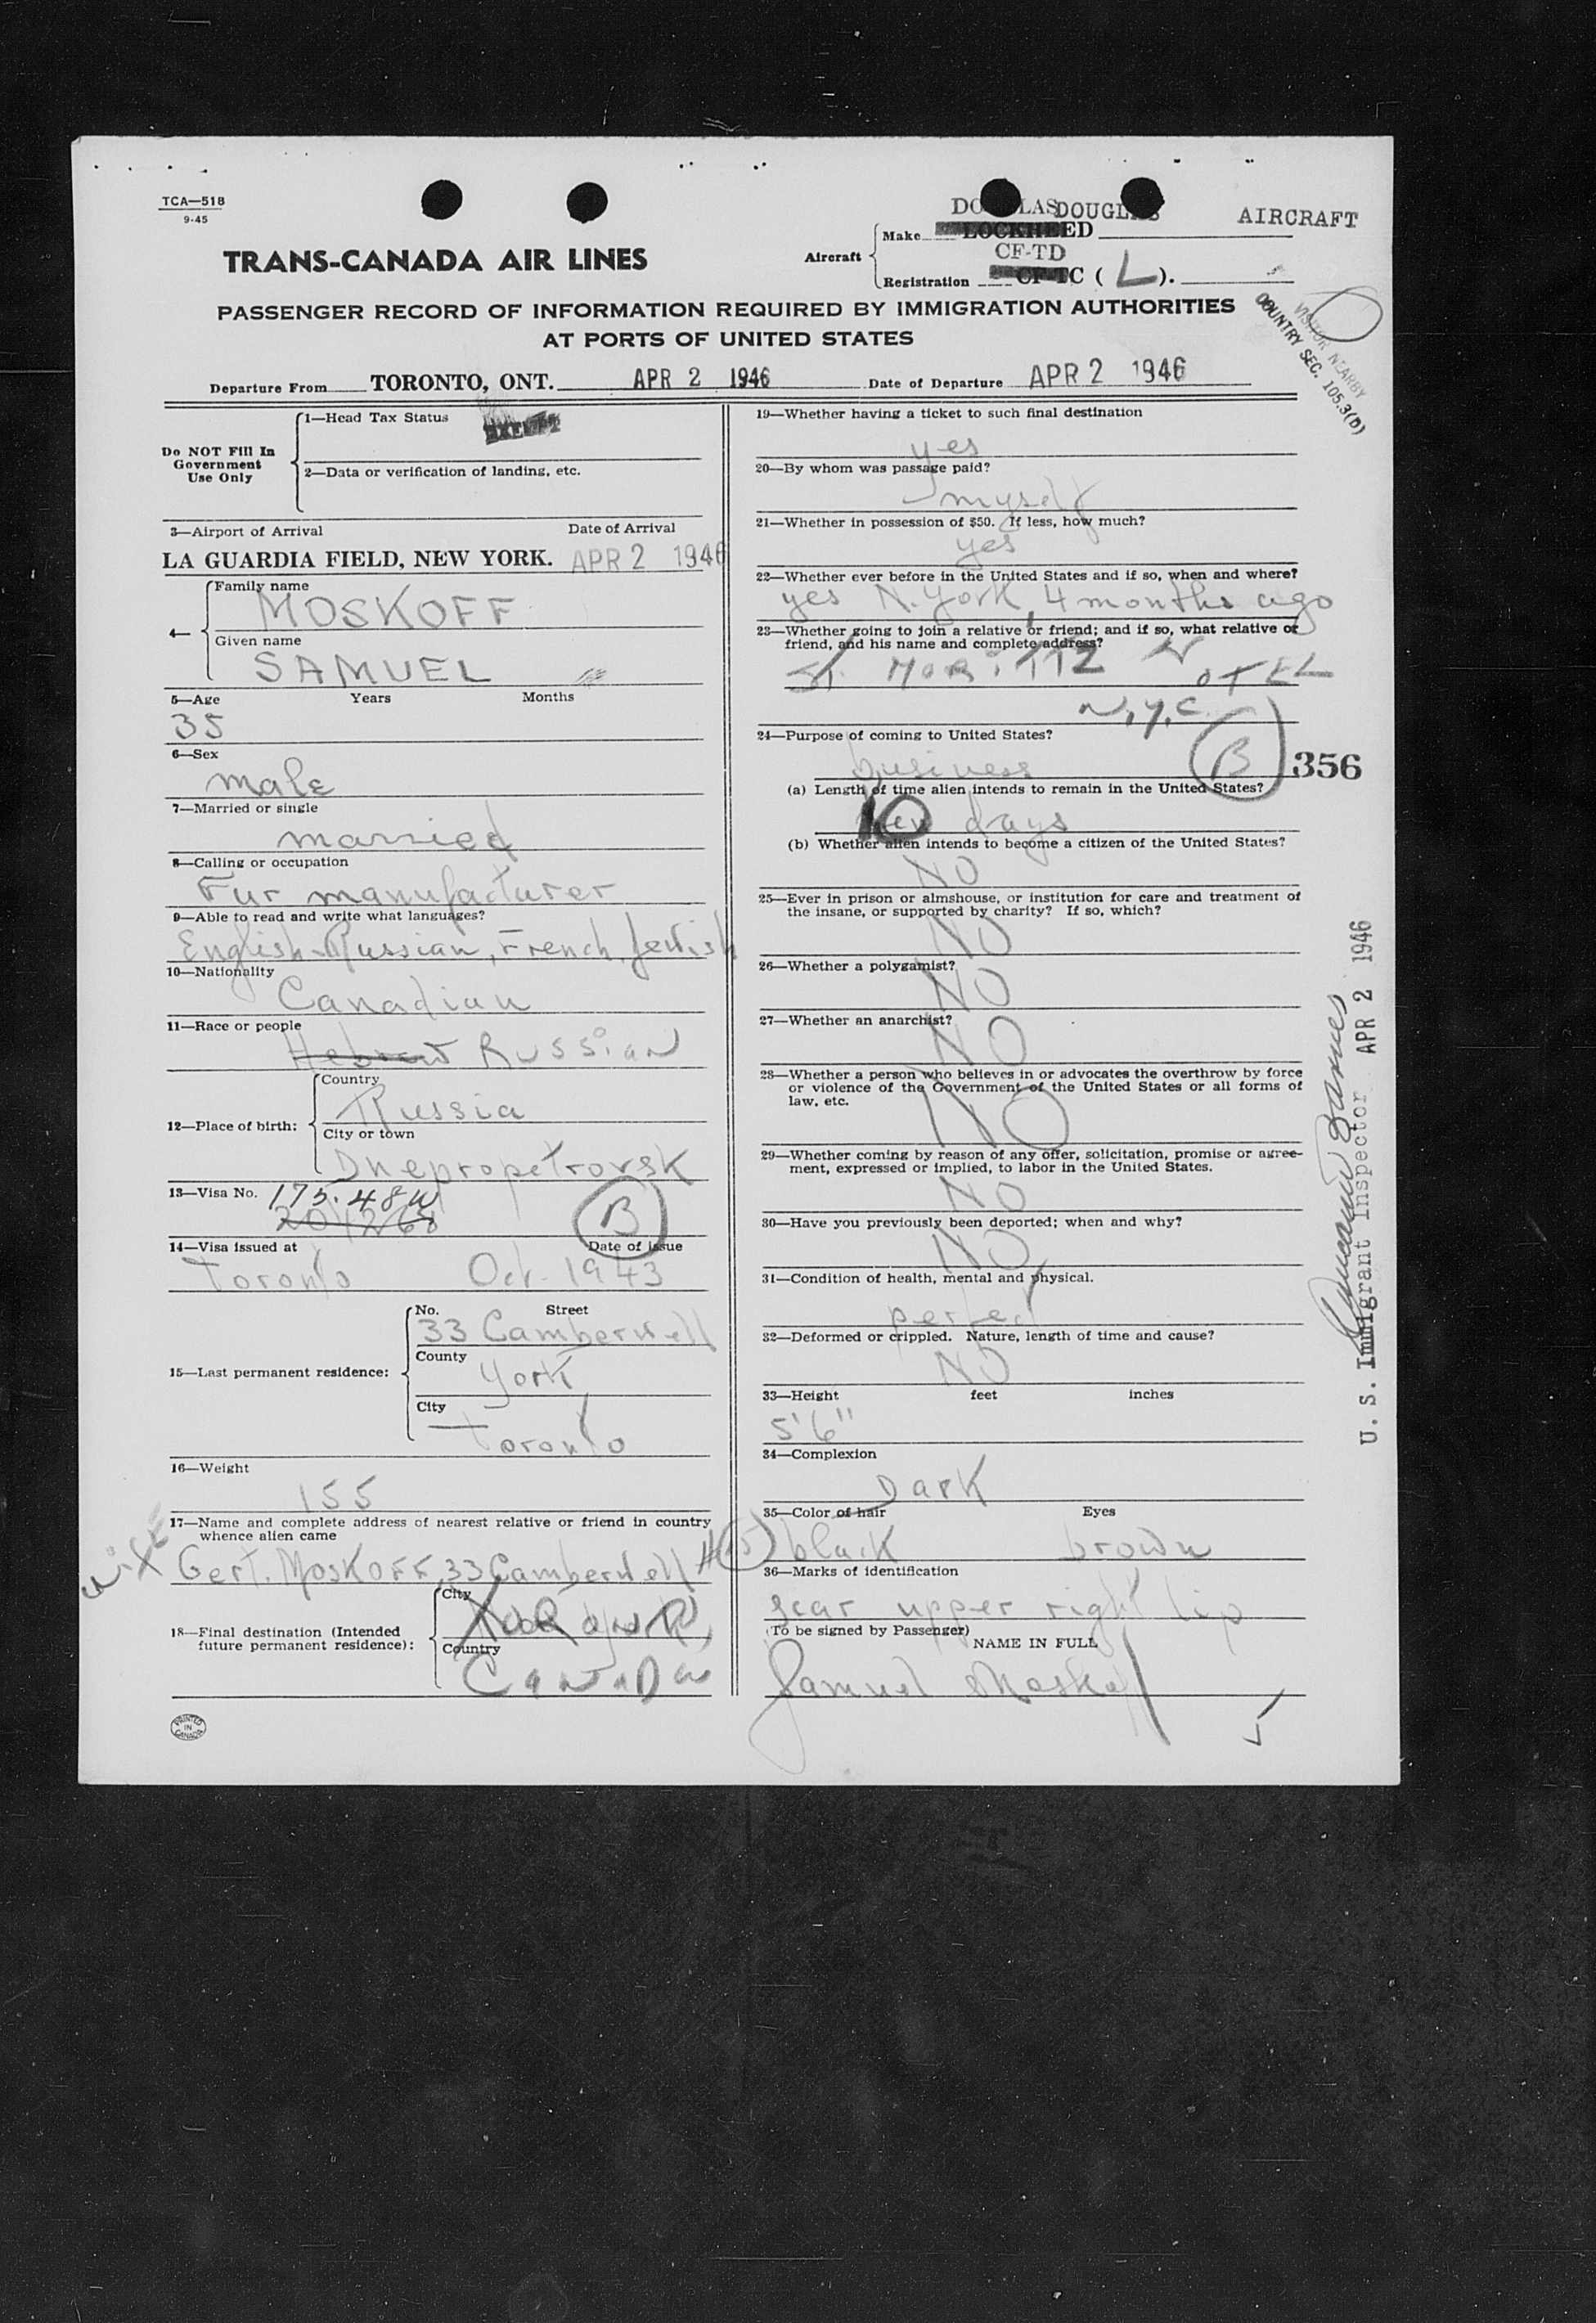 TCA—518
9-45
DOUGLAS DOUGLAS AIRCRAFT
TRANS-CANADA AIR LINES
Aircraft
Make LOCKHEED
CF-TD
Registration CF-TC ( L ).
PASSENGER RECORD OF INFORMATION REQUIRED BY IMMIGRATION AUTHORITIES
AT PORTS OF UNITED STATES
VISITOR NEARBY
COUNTRY SEC. 105.3(D)
Departure From TORONTO, ONT. APR 2 1946 Date of Departure APR 2 1946
Do NOT Fill In
Government
Use Only
1—Head Tax Status EXEMPT
2—Data or verification of landing, etc.
3—Airport of Arrival Date of Arrival
LA GUARDIA FIELD, NEW YORK. APR 2 1946
4—
Family name
MOSKOFF
Given name
SAMUEL
5—Age Years Months
35
6—Sex
male
7—Married or single
married
8—Calling or occupation
Fur manufacturer
9—Able to read and write what languages?
English-Russian, French, Jewish
10—Nationality
Canadian
11—Race or people
Hebrew RUSSIAN
12—Place of birth:
Country
Russia
City or town
Dnepropetrovsk
13—Visa No. 175.48W
B
14—Visa issued at Date of issue
Toronto Oct. 1943
15—Last permanent residence:
No. Street
33 Camberwell
County
York
City
Toronto
16—Weight
155
17—Name and complete address of nearest relative or friend in country
whence alien came
wife Gert. Moskoff, 33 Camberwell
18—Final destination (Intended
future permanent residence):
City
Country
CANADA
PRINTED
IN
CANADA
19—Whether having a ticket to such final destination
yes
20—By whom was passage paid?
myself
21—Whether in possession of $50. If less, how much?
yes
22—Whether ever before in the United States and if so, when and where?
yes N. York, 4 months ago
23—Whether going to join a relative or friend; and if so, what relative or
friend, and his name and complete address?
St. MORITTZ HOTEL
N.Y.C.
24—Purpose of coming to United States?
business B 356
(a) Length of time alien intends to remain in the United States?
10 days
(b) Whether alien intends to become a citizen of the United States?
NO
25—Ever in prison or almshouse, or institution for care and treatment of
the insane, or supported by charity? If so, which?
NO
26—Whether a polygamist?
NO
27—Whether an anarchist?
NO
28—Whether a person who believes in or advocates the overthrow by force
or violence of the Government of the United States or all forms of
law, etc.
NO
29—Whether coming by reason of any offer, solicitation, promise or agree-
ment, expressed or implied, to labor in the United States.
NO
30—Have you previously been deported; when and why?
NO
31—Condition of health, mental and physical.
perfect
32—Deformed or crippled. Nature, length of time and cause?
NO
33—Height feet inches
5'6"
34—Complexion
Dark
35—Color of hair Eyes
black brown
36—Marks of identification
scar upper right lip
(To be signed by Passenger)
NAME IN FULL
Samuel Moskoff
U. S. Immigrant Inspector APR 2 1946